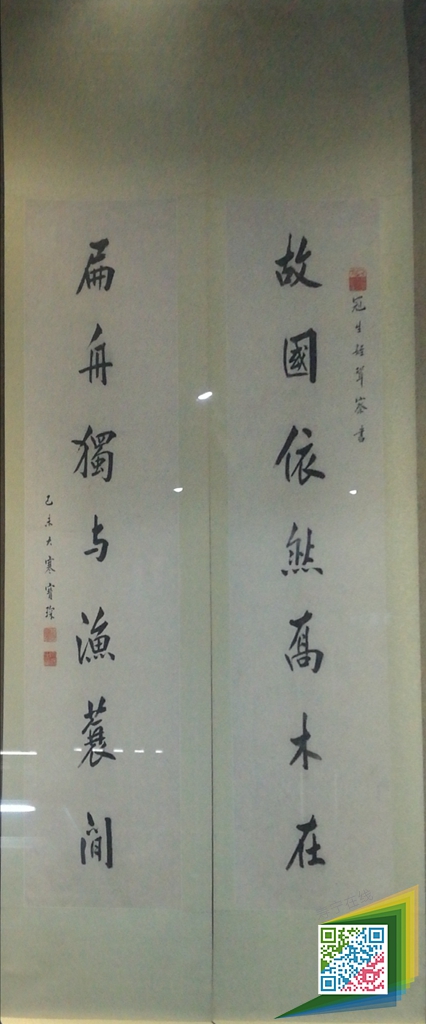 冠生姪聟察書
故國依然喬木在
扁舟獨与漁蓑閒
己未大寒寶琛